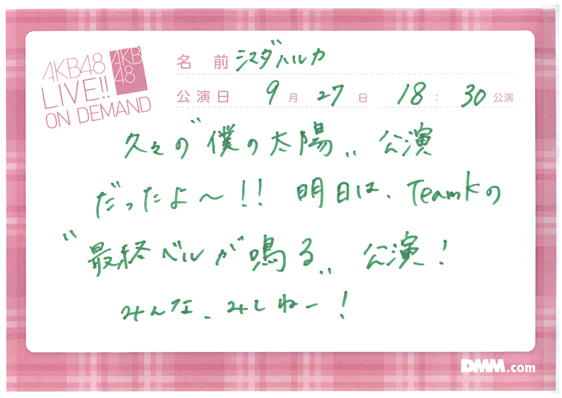 AKB48
LIVE!!
ON DEMAND
AKB
48
名 前 シマダハルカ
公演日 9月 27日 18:30公演
久々の"僕の太陽" 公演
だったよ〜!! 明日は、TeamKの
"最終ベルが鳴る" 公演!
みんな、みしねー!
DMM.com